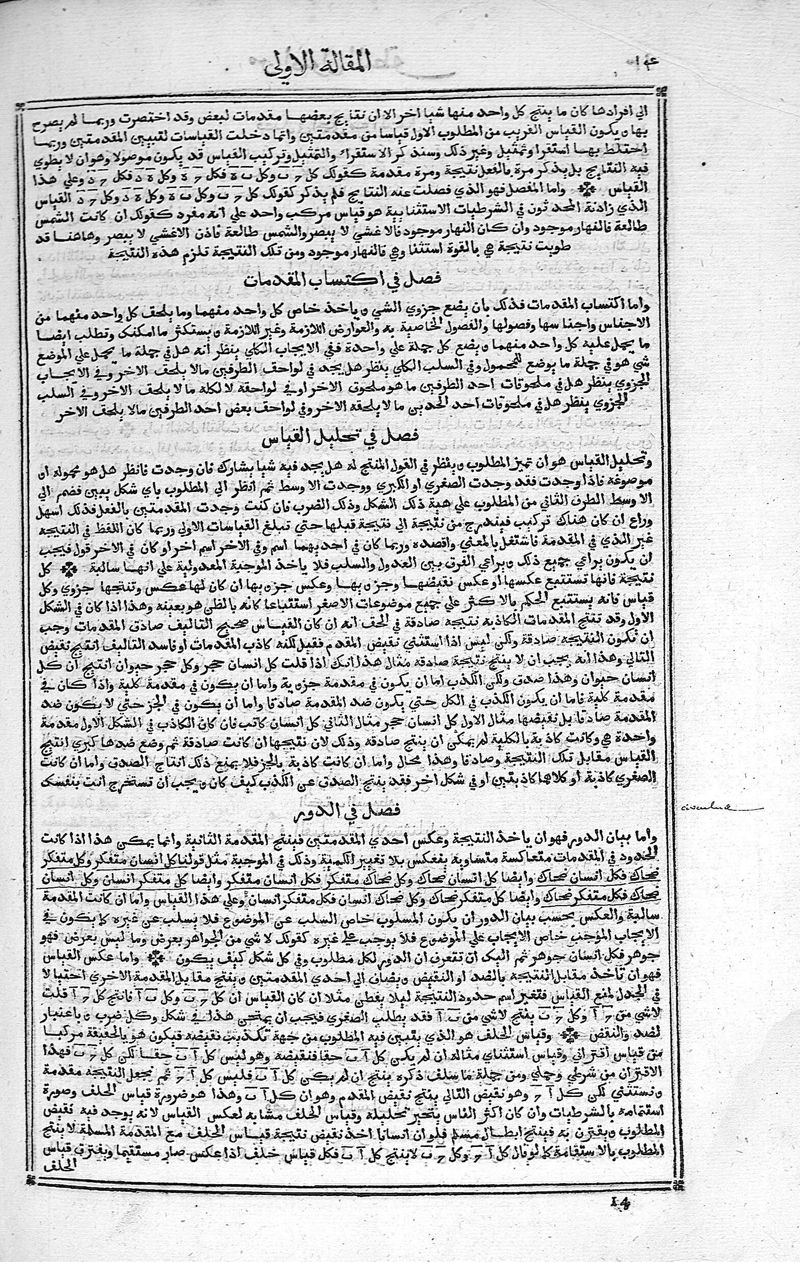 المقالة الاولي
الي افرادها كان ما ينتج كل واحد منها شيا اخر الا ان نتايج بعضها مقدمات لبعض وقد اختصرت وربما لم يصرح
بها ويكون القياس القريب من المطلوب الاول قياسا من مقدمتين وانما دخلت القياسات لتبيين المقدمتين وربما
اختلط بها استقرا وتمثيل وغير ذلك وسنذكر الاستقراء والتمثيل وتركيب القياس قد يكون موصولا وهو ان لا يطوي
فيه النتايج بل يذكر مرة بالفعل نتيجة ومرة مقدمة كقولك كل وكل فكل وكل فكل وعلي هذا
القياس واما المفصل فهو الذي فصلت عنه النتايج فلم يذكر كقولك كل وكل وكل وكل القياس
الذي زادته المحدثون في الشرطيات الاستثنايية هو قياس مركب واحد علي انه مفرد كقولك ان كانت الشمس
طالعة فالنهار موجود وان كان النهار موجود فالاعشي لا يبصر والشمس طالعة فاذن الاعشي لا يبصر وهاهنا قد
طويت نتيجة هي بالقوة استثنا وهي فالنهار موجود ومن تلك النتيجة تلزم هذه النتيجة
فصل في اكتساب المقدمات
واما اكتساب المقدمات فذلك بان يضع جزوي الشي وياخذ خاص كل واحد منهما وما يلحق كل واحد منهما من
الاجناس واجناسها وفصولها والفصول الخاصية به والعوارض اللازمة وغير اللازمة ويستكثر ما امكنك وتطلب ايضا
ما يحمل عليه كل واحد منهما ويضع كل جملة علي واحدة ففي الايجاب الكلي ينظر انه هل في جملة ما يحمل علي الموضع
شي هو في جملة ما يوضع للمحمول وفي السلب الكلي ينظر هل يجد في لواحق الطرفين ما لا يلحق الاخر وفي الايجاب
الجزوي ينظر هل في ملحوقات احد الطرفين ما هو ملحوق الاخر او في لواحقه لا لكله ما لا يلحق الاخر وفي السلب
الجزوي ينظر هل في ملحوقات احد الحدين ما لا يلحقه الاخر وفي لواحق بعض احد الطرفين ما لا يلحق الاخر
فصل في تحليل القياس
وتحليل القياس هو ان تميز المطلوب وينظر في القول المنتج له هل يجد فيه شيا يشارك فان وجدت فانظر هل هو محموله او
موضوعه فاذا وجدت فقد وجدت الصغري او الكبري ووجدت الاوسط ثم انظر الي المطلوب باي شكل يبين فضم الي
الاوسط الطرف الثاني من المطلوب علي هية ذلك الشكل وذلك الضرب فان كنت وجدت المقدمتين بالفعل فذلك اسهل
وراع ان كان هناك تركيب فيندرج من نتيجة الي نتيجة قبلها حتي تبلغ القياسات الاولي وربما كان اللفظ في النتيجة
غير الذي في المقدمة فاشتغل بالمعني واقصده وربما كان في احديهما اسم وفي الاخر اسم اخر او كان في الاخر قول فيجب
ان يكون يراعي جميع ذلك ويراعي الفرق بين العدول والسلب فلا ياخذ الموجبة المعدولية علي انها سالبة كل
نتيجة فانها تستتبع عكسها او عكس نقيضها وجزيها وعكس جزيها ان كان لها عكس وتنتجها جزوي وكل
قياس فانه يستتبع الحكم بالاكثر علي جميع موضوعات الاصغر استتباعا كانه بالظن هو بعينه وهذا اذا كان في الشكل
الاول وقد تنتج المقدمات الكاذبة نتيجة صادقة في الخف انه ان كان القياس صحيح التاليف صادق المقدمات وجب
ان تكون النتيجة صادقة ولكن ليس اذا استثني نقيض المقدم فقيل لكنه كاذب المقدمات او فاسد التاليف انتج نقيض
التالي وهذا انه يجب ان لا ينتج نتيجة صادقة مثال هذا انك اذا قلت كل انسان حجر وكل حجر حيوان انتج ان كل
انسان حيوان وهذا صدق ولكن الكذب اما ان يكون في مقدمة جزوية واما ان يكون في مقدمة كلية واذا كان في
مقدمة كلية فاما ان يكون الكذب في الكل حتي يكون ضد المقدمة صادقا واما ان يكون في الجز حتي لا يكون ضد
المقدمة صادقا بل نقيضها مثال الاول كل انسان حجر مثال الثاني كل انسان كاتب فان كان الكاذب في الشكل الاول مقدمة
واحدة هي وكانت كاذبة بالكلية لم يمكن ان ينتج صادقة وذلك لان نتيجها ان كانت صادقة ثم وضع ضدها كبري انتج
القياس مقابل تلك النتيجة وصادقا وهذا محال واما ان كانت كاذبة بالجز فلا يمنع ذلك انتاج الصدق واما ان كانت
الصغري كاذبة او كلاهما كاذبتين او في شكل اخر فقد ينتج الصدق عن الكذب كيف كان ويجب ان تستخرج انت بنفسك
فصل في الدور
واما بيان الدور فهو ان ياخذ النتيجة وعكس احدي المقدمتين فينتج المقدمة الثانية وانما يمكن هذا اذا كانت
الحدود في المقدمات متعاكسة متساوية ينعكس بلا تغيير الكمية وذلك في الموجبة مثل قولنا كل انسان متفكر وكل متفكر
ضحاك فكل انسان ضحاك وايضا كل انسان ضحاك وكل ضحاك متفكر فكل انسان متفكر وايضا كل متفكر انسان وكل انسان
ضحاك فكل متفكر ضحاك وايضا كل متفكر ضحاك وكل ضحاك انسان فكل متفكر انسان وعلي هذا القياس واما ان كانت المقدمة
سالبة والعكس بحسب بيان الدور ان يكون المسلوب خاص السلب عن الموضوع فلا يسلب عن غيره كما يكون في
الايجاب الموجب خاص الايجاب علي الموضوع فلا يوجب علي غيره كقولك لا شي من الجواهر بعرض وما ليس بعرض فهو
جوهر فكل انسان جوهر ثم اليك ان تتعرف ان الدور لكل مطلوب وفي كل شكل كيف يكون واما عكس القياس
فهو ان تاخذ مقابل النتيجة بالضد او النقيض ويضاف الي احدي المقدمتين وينتج مقابل المقدمة الاخري احتيالا
في الجدل لمنع القياس فتغير اسم حدود النتيجة ليلا يفطن مثلا ان كان القياس ان كل وكل فانتج كل قلت
لا شي من وكل ينتج لا شي من فقد يطلب الصغري فيجب ان يمتحن هذا في شكل وكل ضرب وباعتبار
لضد والنقض وقياس الخلف هو الذي يتبين فيه المطلوب من جهة تكذيب نقيضه فيكون هو بالحقيقة مركبا
من قياس اقتراني وقياس استثناي مثاله ان لم يكن كل حقا فنقيضه وهو ليس كل حقا لكن كل فهذا
الاقتران من شرطي وحملي ومن جملة ما سلف ذكره ينتج ان لم يكن كل فليس كل ثم يجعل النتيجة مقدمة
ونستثني لكن كل وهو نقيض التالي ينتج نقيض المقدم وهو ان كل وهذا هو ضرورة قياس الخلف وصورة
استتمامه بالشرطيات وان كان اكثر الناس يتحير تحليله وقياس الخلف مشابه لعكس القياس لانه يوجد فيه نقيض
المطلوب ويقترن به فينتج ابطال مسلم فلو ان انسانا اخذ نقيض نتيجة قياس الخلف مع المقدمة المسلمة لا ينتج
المطلوب بالاستقامة كما لو قال كل وكل لا ينتج كل فكل قياس خلف اذا عكس صار مستقيما ويفترق قياس
الخلف
14